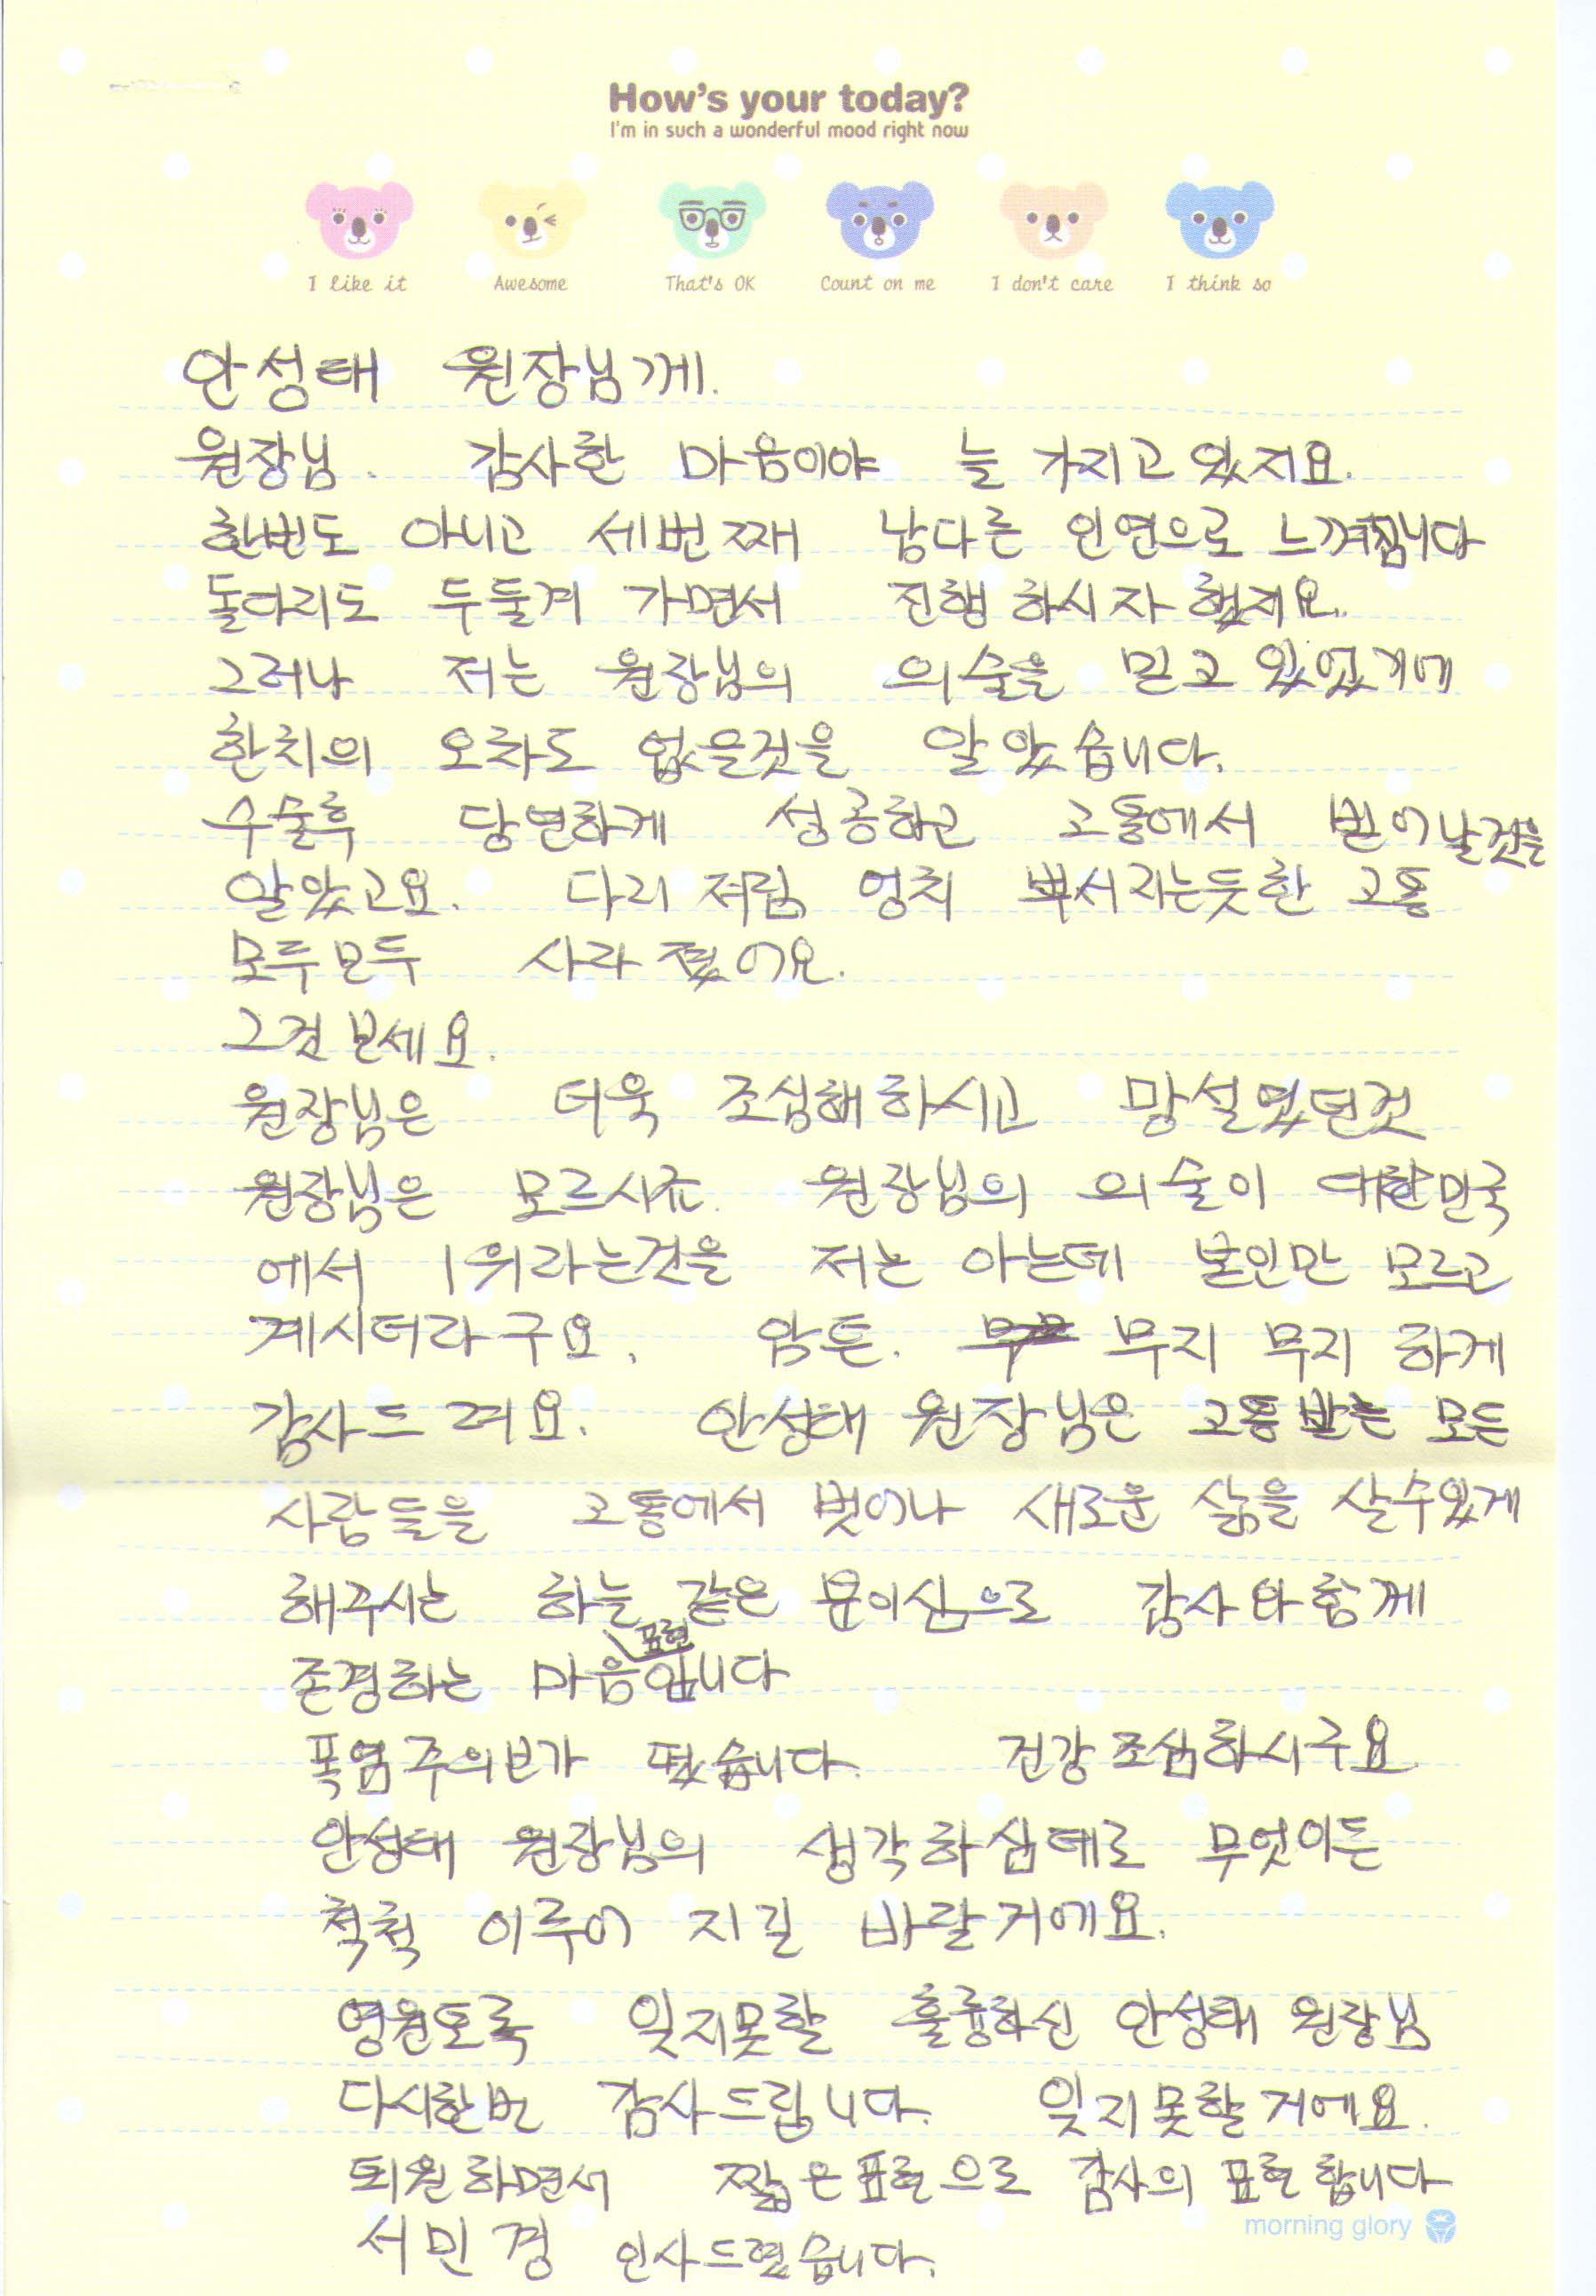 How's your today?
I'm in such a wonderful mood right now
I like it Awesome That's OK Count on me I don't care I think so
안성태 원장님께.
원장님. 감사한 마음이야 늘 가지고 있지요.
한번도 아니고 세번째 남다른 인연으로 느껴집니다
돌다리도 두둘겨 가면서 진행하시자 했지요.
그러나 저는 원장님의 의술을 믿고 있었기에
한치의 오차도 없을것을 알았습니다.
수술후 당연하게 성공하고 고통에서 벋어날것을
알았고요. 다리저림, 엉치 뿌서지는듯한 고통
모두모두 사라졌어요.
그것 보세요.
원장님은 더욱 조심해하시고 망설였던것
원장님은 모르시죠. 원장님의 의술이 대한민국
에서 1위라는것을 저는 아는데 본인만 모르고
계시더라구요. 암튼. 무지 무지 하게
감사드려요. 안성태 원장님은 고통받는 모든
사람들을 고통에서 벗어나 새로운 삶을 살수있게
해주시는 하늘 같은 분이심으로 감사와 함께
존경하는 마음 표현입니다
폭염주의보가 떴습니다. 건강조심하시구요
안성태 원장님의 생각하심데로 무엇이든
척척 이루어 지길 바랄거에요.
영원토록 잊지못할 훌륭하신 안성태 원장님
다시한번 감사드립니다. 잊지못할거에요.
퇴원하면서 짧은표현으로 감사의 표현합니다
morning glory
서민경 인사드렸습니다.